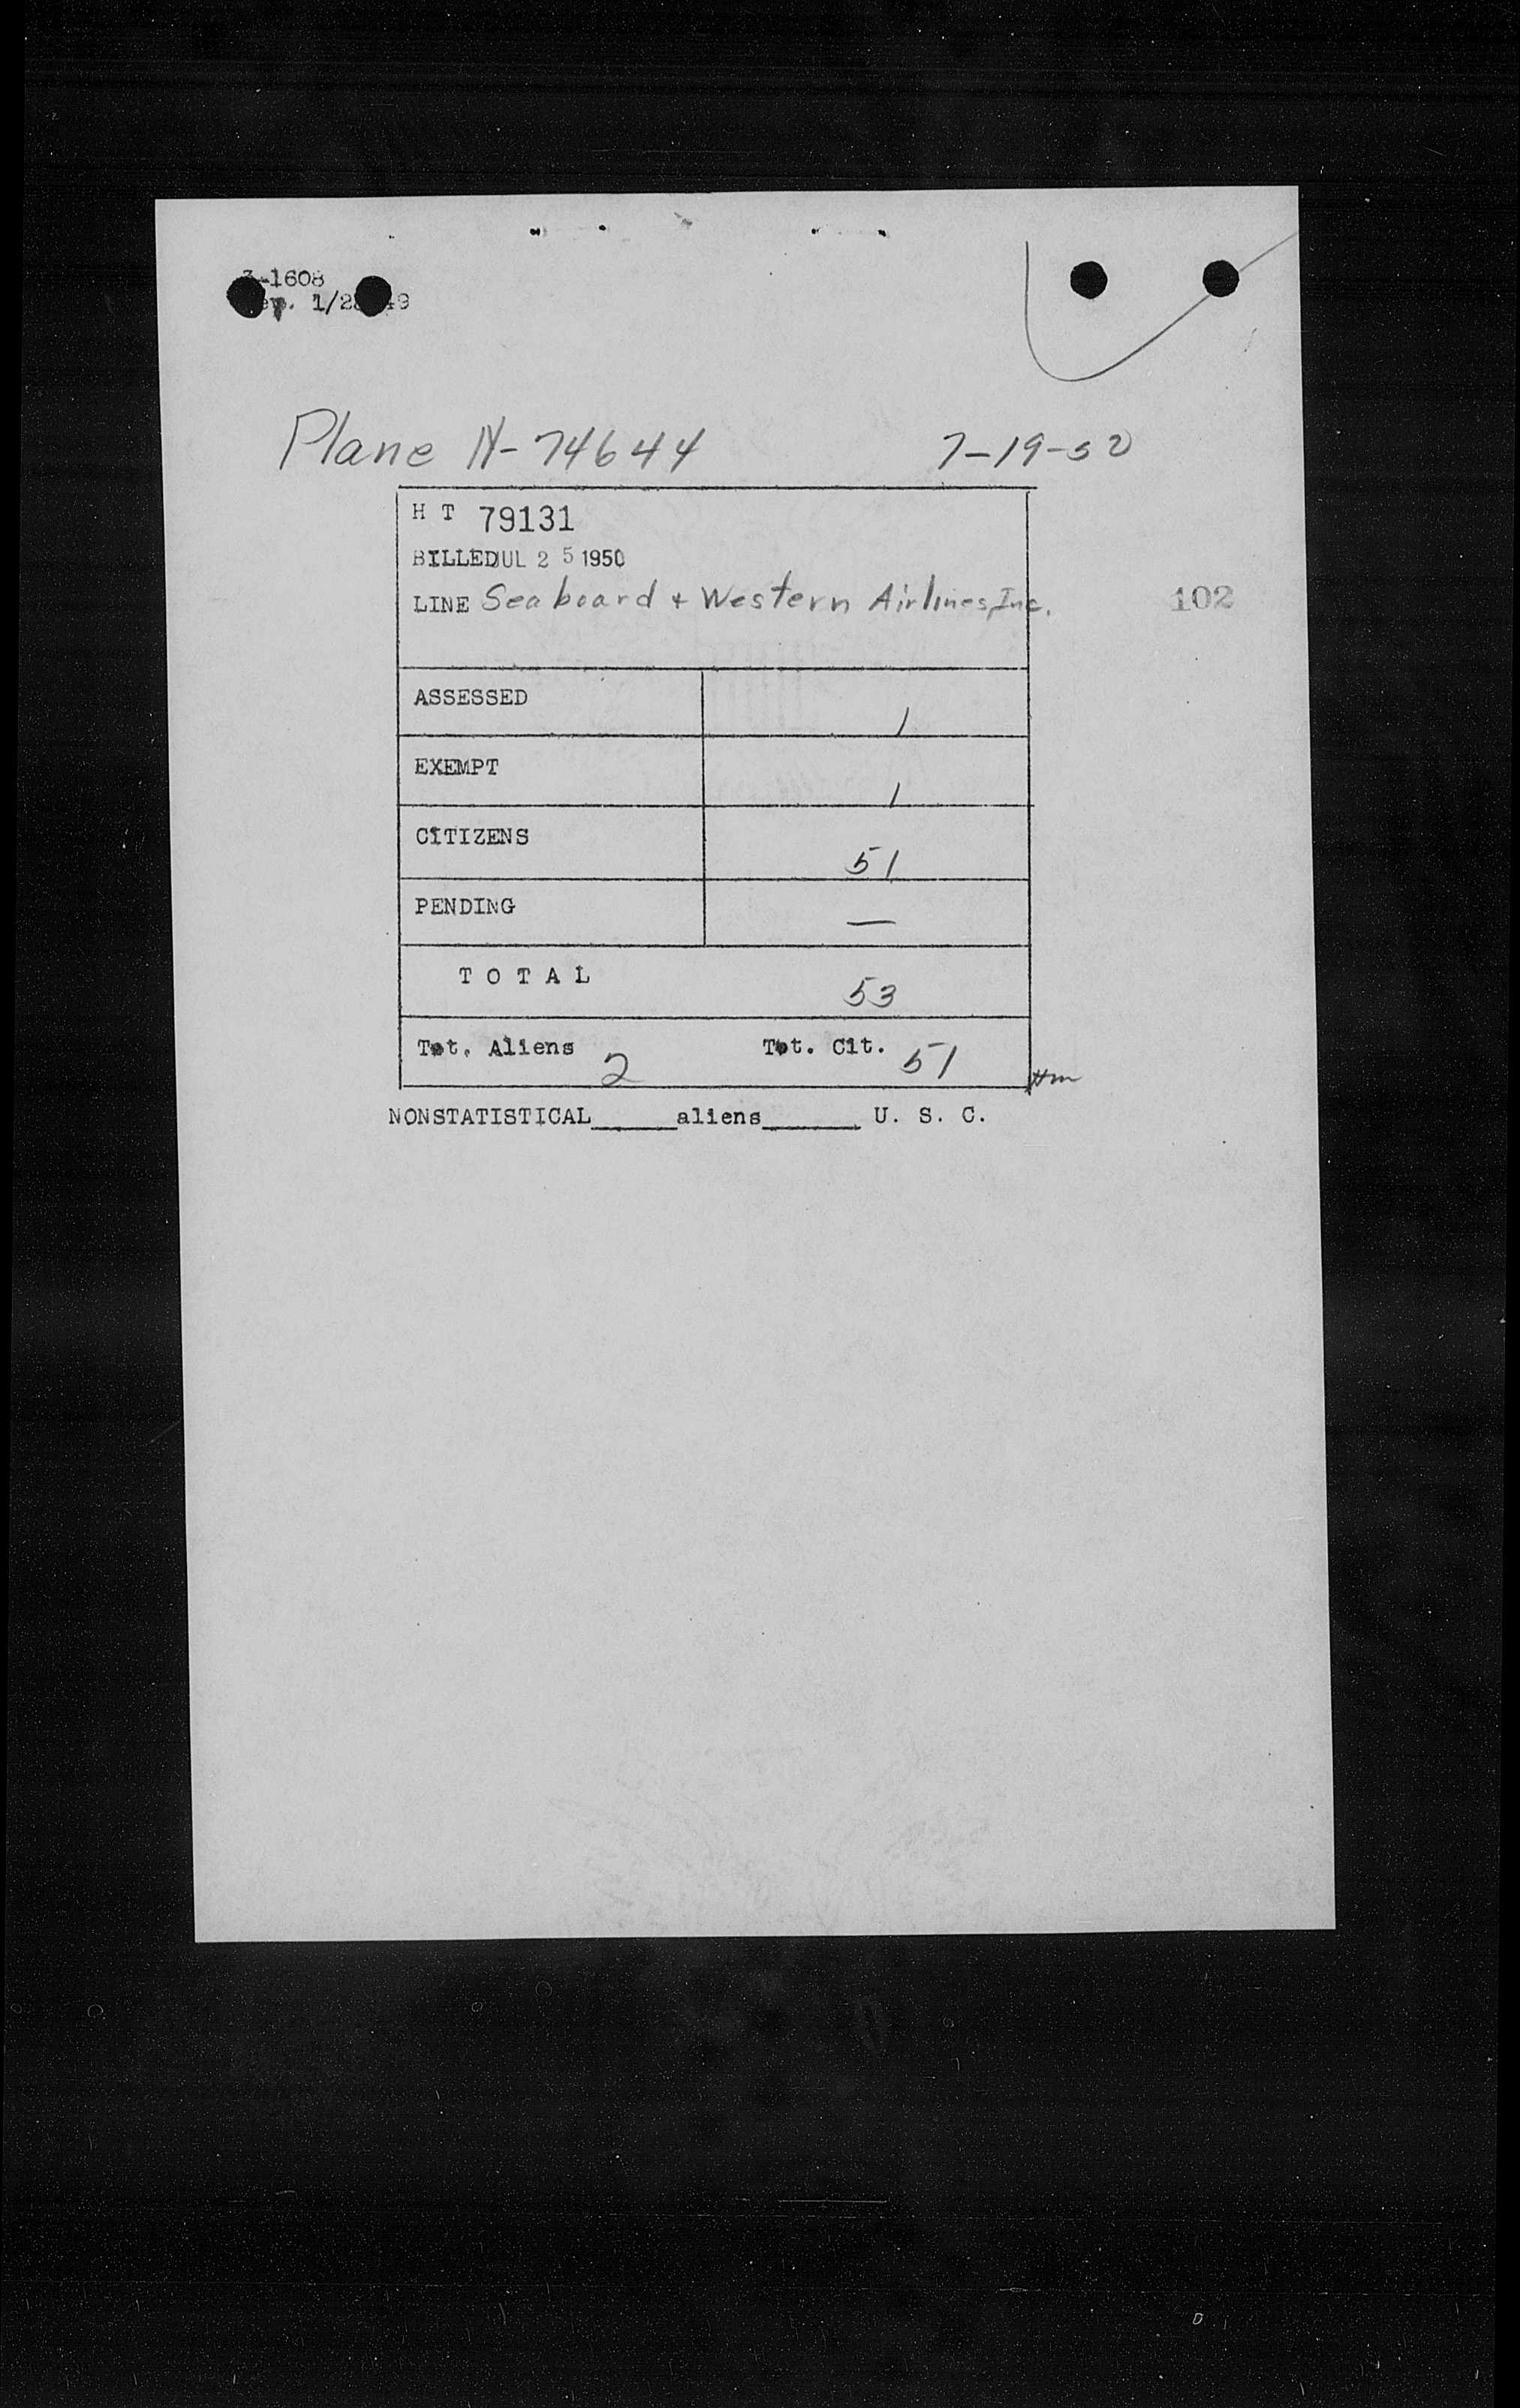 3-1608
Rev. 1/28/49
Plane N-74644 7-19-50
H T 79131
BILLED JUL 25 1950
LINE Seaboard + Western Airlines, Inc. 102
ASSESSED 1
EXEMPT 1
CITIZENS 51
PENDING —
TOTAL 53
Tot. Aliens 2 Tot. Cit. 51
NONSTATISTICAL_____aliens_____ U. S. C.